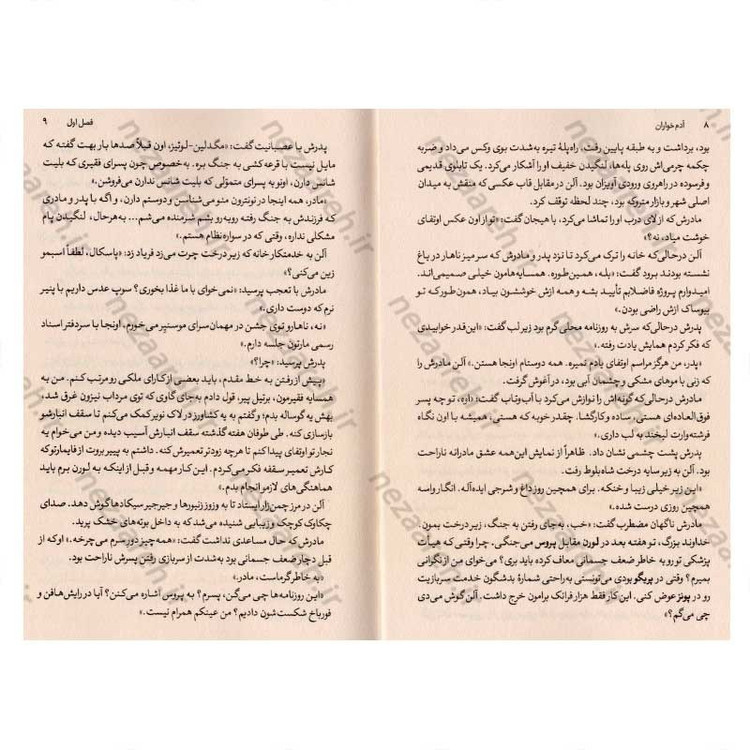 ۸ آدم‌خواران
بود، برداشت و به طبقه پایین رفت، راه‌پلهٔ تیره به‌شدت بوی وکس می‌داد و ضربه
چکمه چرمی‌اش روی پله‌ها، لنگیدن خفیف او را آشکار می‌کرد. یک تابلوی قدیمی
و فرسوده در راهروی ورودی آویزان بود. آلن در مقابل قاب عکسی که منقش به میدان
اصلی شهر و بازار متروکه بود، چند لحظه توقف کرد.
مادرش که از لای درب او را تماشا می‌کرد، با هیجان گفت: «تو از اون عکس اوتفای
خوشت میاد، نه؟»
آلن درحالی‌که خانه را ترک می‌کرد تا نزد پدر و مادرش که سر میز ناهار در باغ
نشسته بودند، برود گفت: «بله، همین‌طوره. همسایه‌هامون خیلی صمیمی‌اند.
امیدوارم پروژه فاضلابم تأیید بشه و همه ازش خوششون بیاد، همون‌طور که تو
بیوساک ازش راضی بودن.»
پدرش درحالی‌که سرش به روزنامه محلی گرم بود زیر لب گفت: «این‌قدر خوابیدی
که فکر کردم همایش یادت رفته.»
«پدر، من هرگز مراسم اوتفای یادم نمیره. همه دوستام اونجا هستن.» آلن مادرش را
که زنی با موهای مشکی و چشمان آبی بود، در آغوش گرفت.
مادرش درحالی‌که گونه‌اش را نوازش می‌کرد با آب‌وتاب گفت: «اوه، تو چه پسر
فوق‌العاده‌ای هستی، ساده و کارگشا. چقدر خوبه که هستی، همیشه با اون نگاه
فرشته‌وارت لبخند به لب داری.»
پدرش پشت چشمی نشان داد. ظاهراً از نمایش این‌همه عشق مادرانه ناراحت
بود. آلن به زیر سایه درخت شاه‌بلوط رفت.
«این زیر خیلی زیبا و خنکه. برای همچین روز داغ و شرجی ایده‌آله. انگار واسه
همچین روزی درست شده.»
مادرش ناگهان مضطرب گفت: «خب، به‌جای رفتن به جنگ، زیر درخت بمون.
خداوند بزرگ، تو هفته بعد در لورن مقابل پروس می‌جنگی. چرا وقتی که هیأت
پزشکی تو رو به خاطر ضعف جسمانی معاف کرده باید بری؟ می‌خوای من از نگرانی
بمیرم؟ وقتی در پریگو بودی می‌تونستی به راحتی شمارهٔ بدشگون خدمت سربازیت
رو در پونز عوض کنی. این کار فقط هزار فرانک برامون خرج داشت. آلن گوش می‌دی
چی می‌گم؟»
فصل اول ۹
پدرش با عصبانیت گفت: «مگدلین-لوئیز، اون قبلاً صدها بار بهت گفته که
مایل نیست با قرعه کشی به جنگ بره. به‌خصوص چون پسرای فقیری که بلیت
شانس دارن، اونو به پسرای متموّلی که بلیت شانس ندارن می‌فروشن.»
«مادر، همه اینجا در نونترون منو می‌شناسن و دوستم دارن، و اگه با پدر و مادری
که فرزندش به جنگ رفته روبه‌رو بشم شرمنده می‌شم... به‌هرحال، لنگیدن پام
مشکلی نداره، وقتی که در سواره‌نظام هستم.»
آلن به خدمتکار خانه که زیر درخت چرت می‌زد فریاد زد: «پاسکال، لطفاً اسبمو
زین می‌کنی؟»
مادرش با تعجب پرسید: «نمی‌خوای با ما غذا بخوری؟ سوپ عدس داریم با پنیر
نرم که دوست داری.»
«نه، ناهارو توی جشن در مهمان سرای موسنیر می‌خورم. اونجا با سردفتر اسناد
رسمی مارتون جلسه دارم.»
پدرش پرسید: «چرا؟»
«پیش از رفتن به خط مقدم، باید بعضی از کارای ملکی رو مرتب کنم. من به
همسایه فقیرمون، برتیل پیر، قول دادم به‌جای گاوی که توی مرداب نیزون غرق شد،
بهش یه گوساله بدم؛ و گفتم به یه کشاورز در لاک نویر کمک می‌کنم تا سقف انبارشو
بازسازی کنه. طی طوفان هفته گذشته سقف انبارش آسیب دیده و من می‌خوام یه
نجار تو اوتفای پیدا کنم تا هرچه زودتر تعمیرش کنه. داشتم به پییر بروت از فایمارتو که
کارش تعمیر سقفه فکر می‌کردم. این کار مهمه و قبل از اینکه به لورن برم باید
هماهنگی‌های لازمو انجام بدم.»
آلن در مرز چمن‌زار ایستاد تا به وزوز زنبورها و جیرجیر سیکادها گوش دهد. صدای
چکاوک کوچک و زیبایی شنیده می‌شد که به داخل بوته‌های خشک پرید.
مادرش که حال مساعدی نداشت گفت: «همه‌چیز دور سرم می‌چرخه.» او که از
قبل دچار ضعف جسمانی بود به‌شدت از سربازی رفتن پسرش ناراحت بود.
«به خاطر گرماست، مادر.»
«این روزنامه‌ها چی می‌گن، پسرم؟ به پروس اشاره می‌کنن؟ آیا در رایش‌هافن و
فورباخ شکست‌شون دادیم؟ من عینکم همرام نیست.»
nezaareh.ir